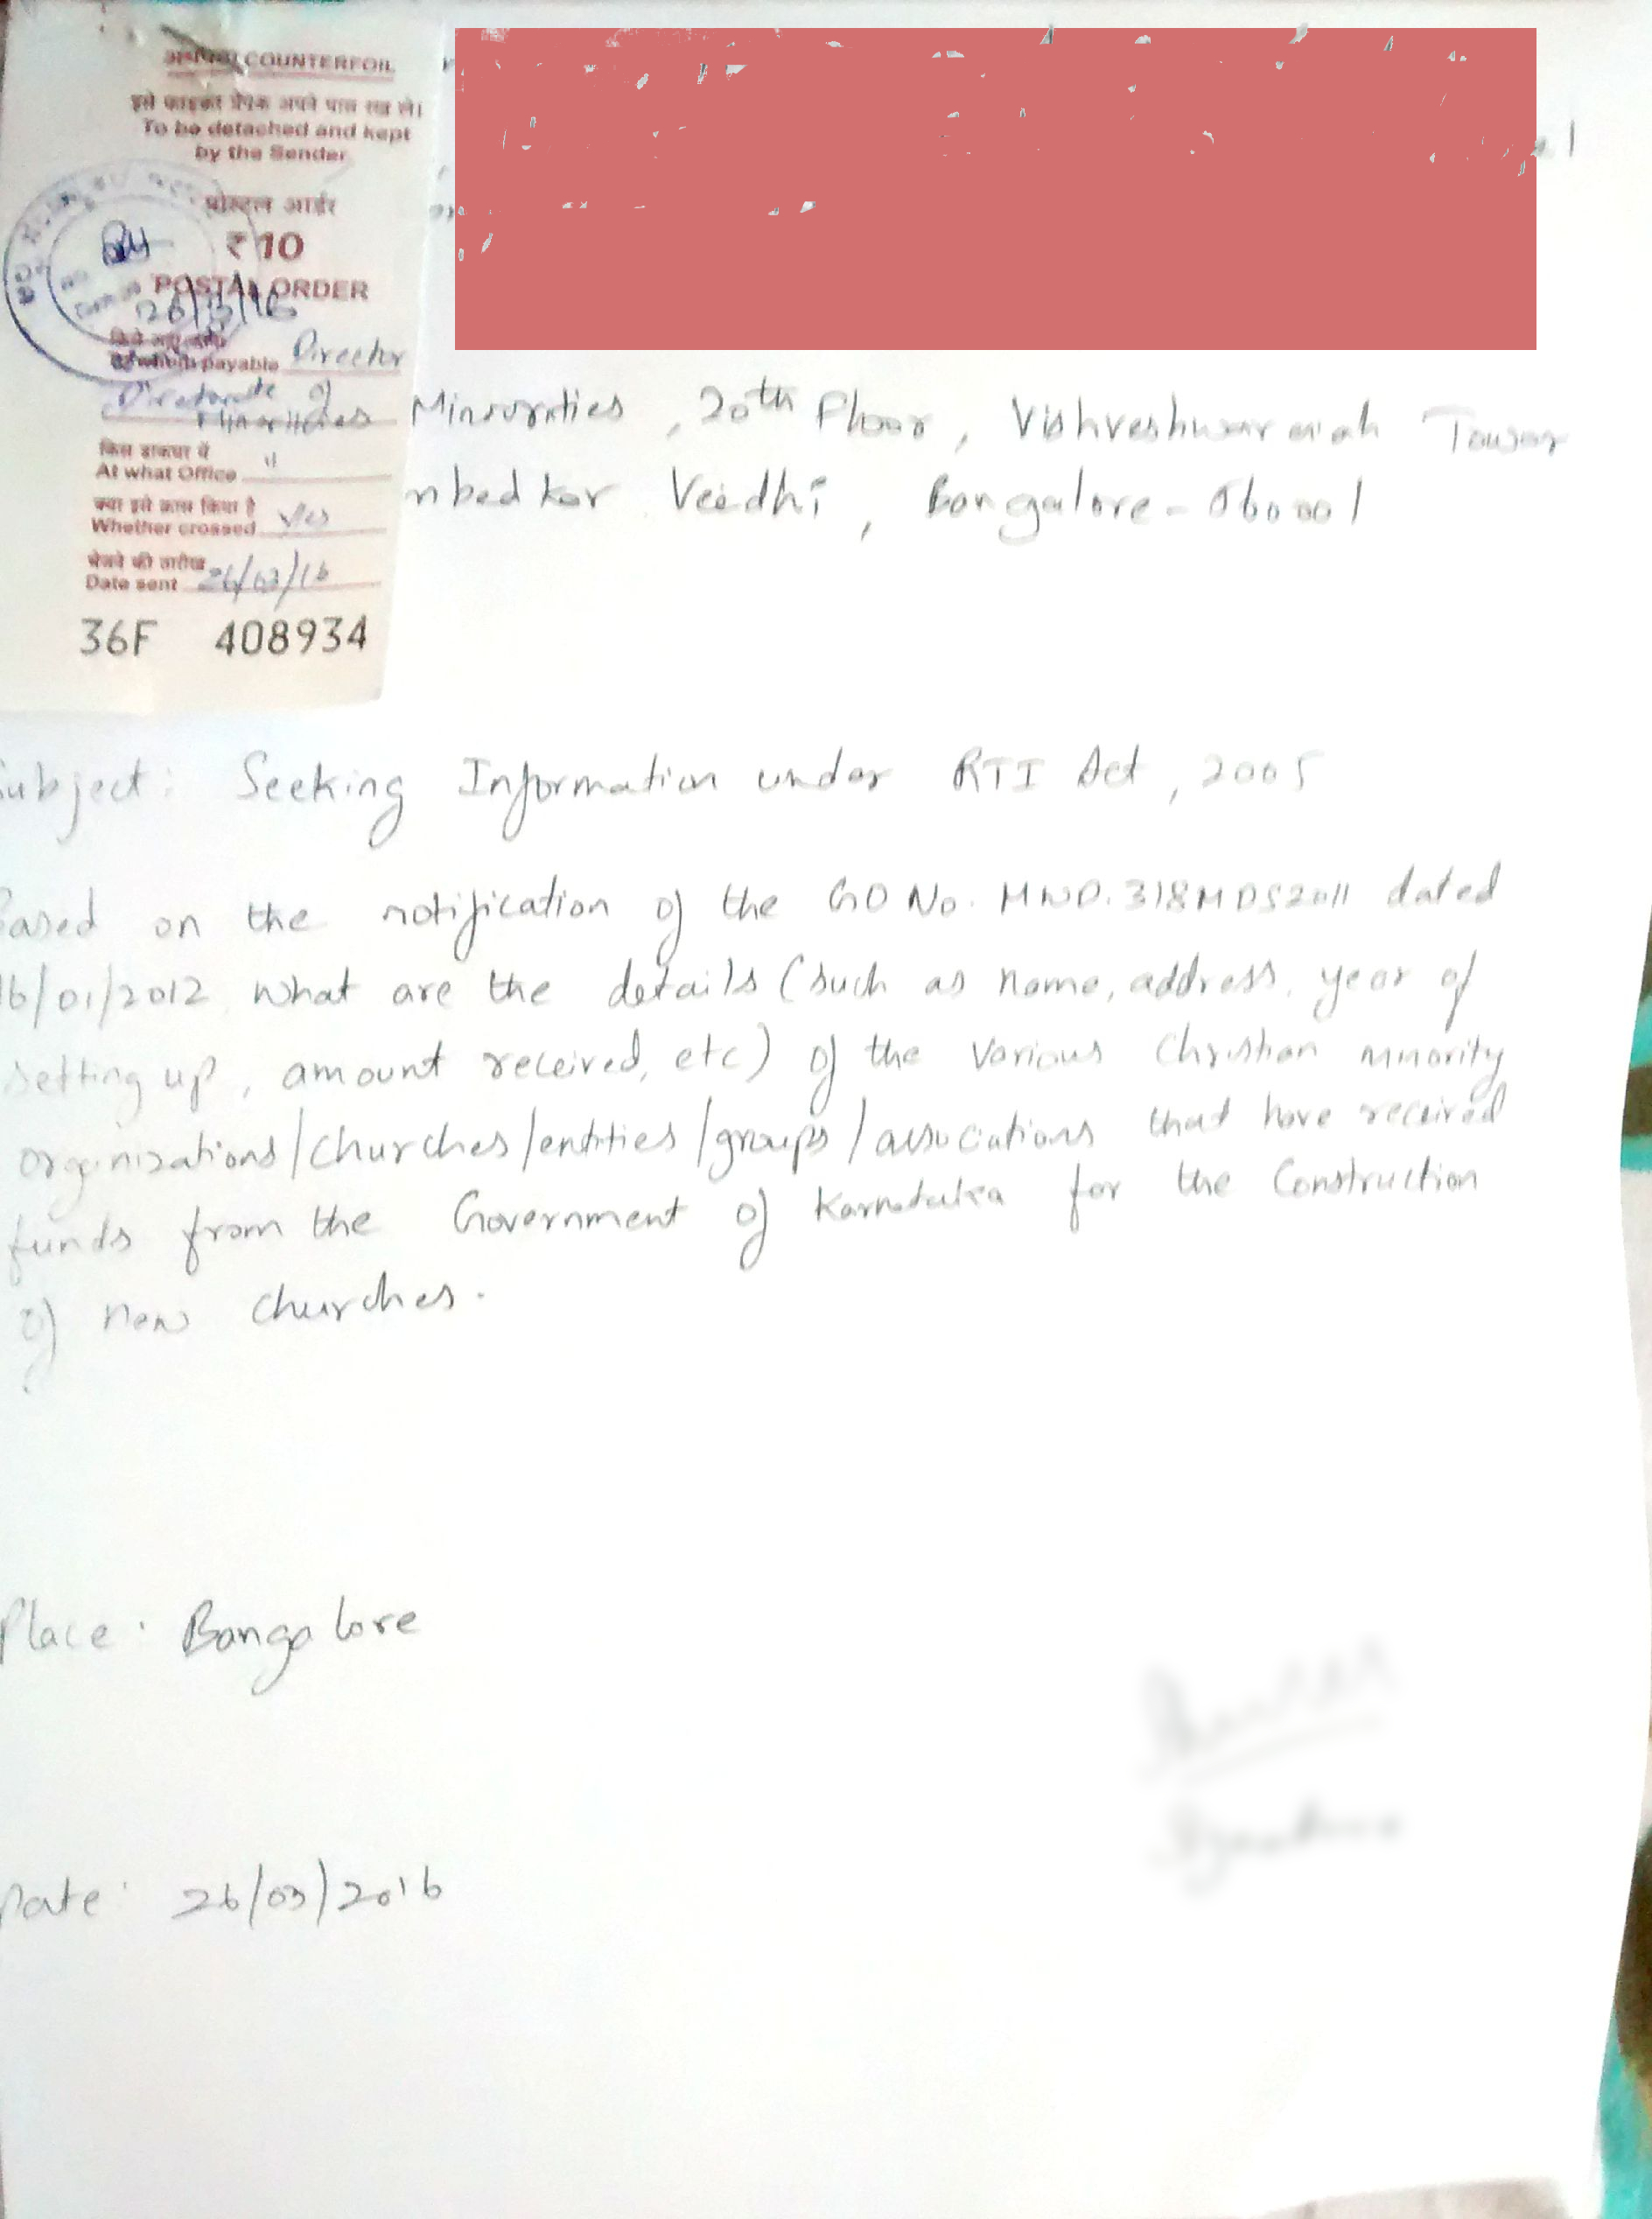 COUNTERFOIL
इसे फाड़कर प्रेषक अपने पास रख ले।
To be detached and kept
by the Sender
पोस्टल आर्डर
₹ 10
POSTAL ORDER
26/3/16
payable Director
Directorate of
Minorities
किस डाकघर में
At what Office "
क्या इसे क्रास किया है
Whether crossed Yes
भेजने की तारीख
Date sent 26/03/16
36F 408934
Minorities, 20th Floor, Vishveshwaraiah Tower
mbedkar Veedhi, Bangalore - 560001
Subject: Seeking Information under RTI Act, 2005
Based on the notification of the GO No. MWD.318MDS2011 dated
16/01/2012 what are the details (such as name, address, year of
setting up, amount received, etc) of the various Christian minority
organizations/churches/entities/groups/associations that have received
funds from the Government of Karnataka for the Construction
of new churches.
Place: Bangalore
Date: 26/03/2016